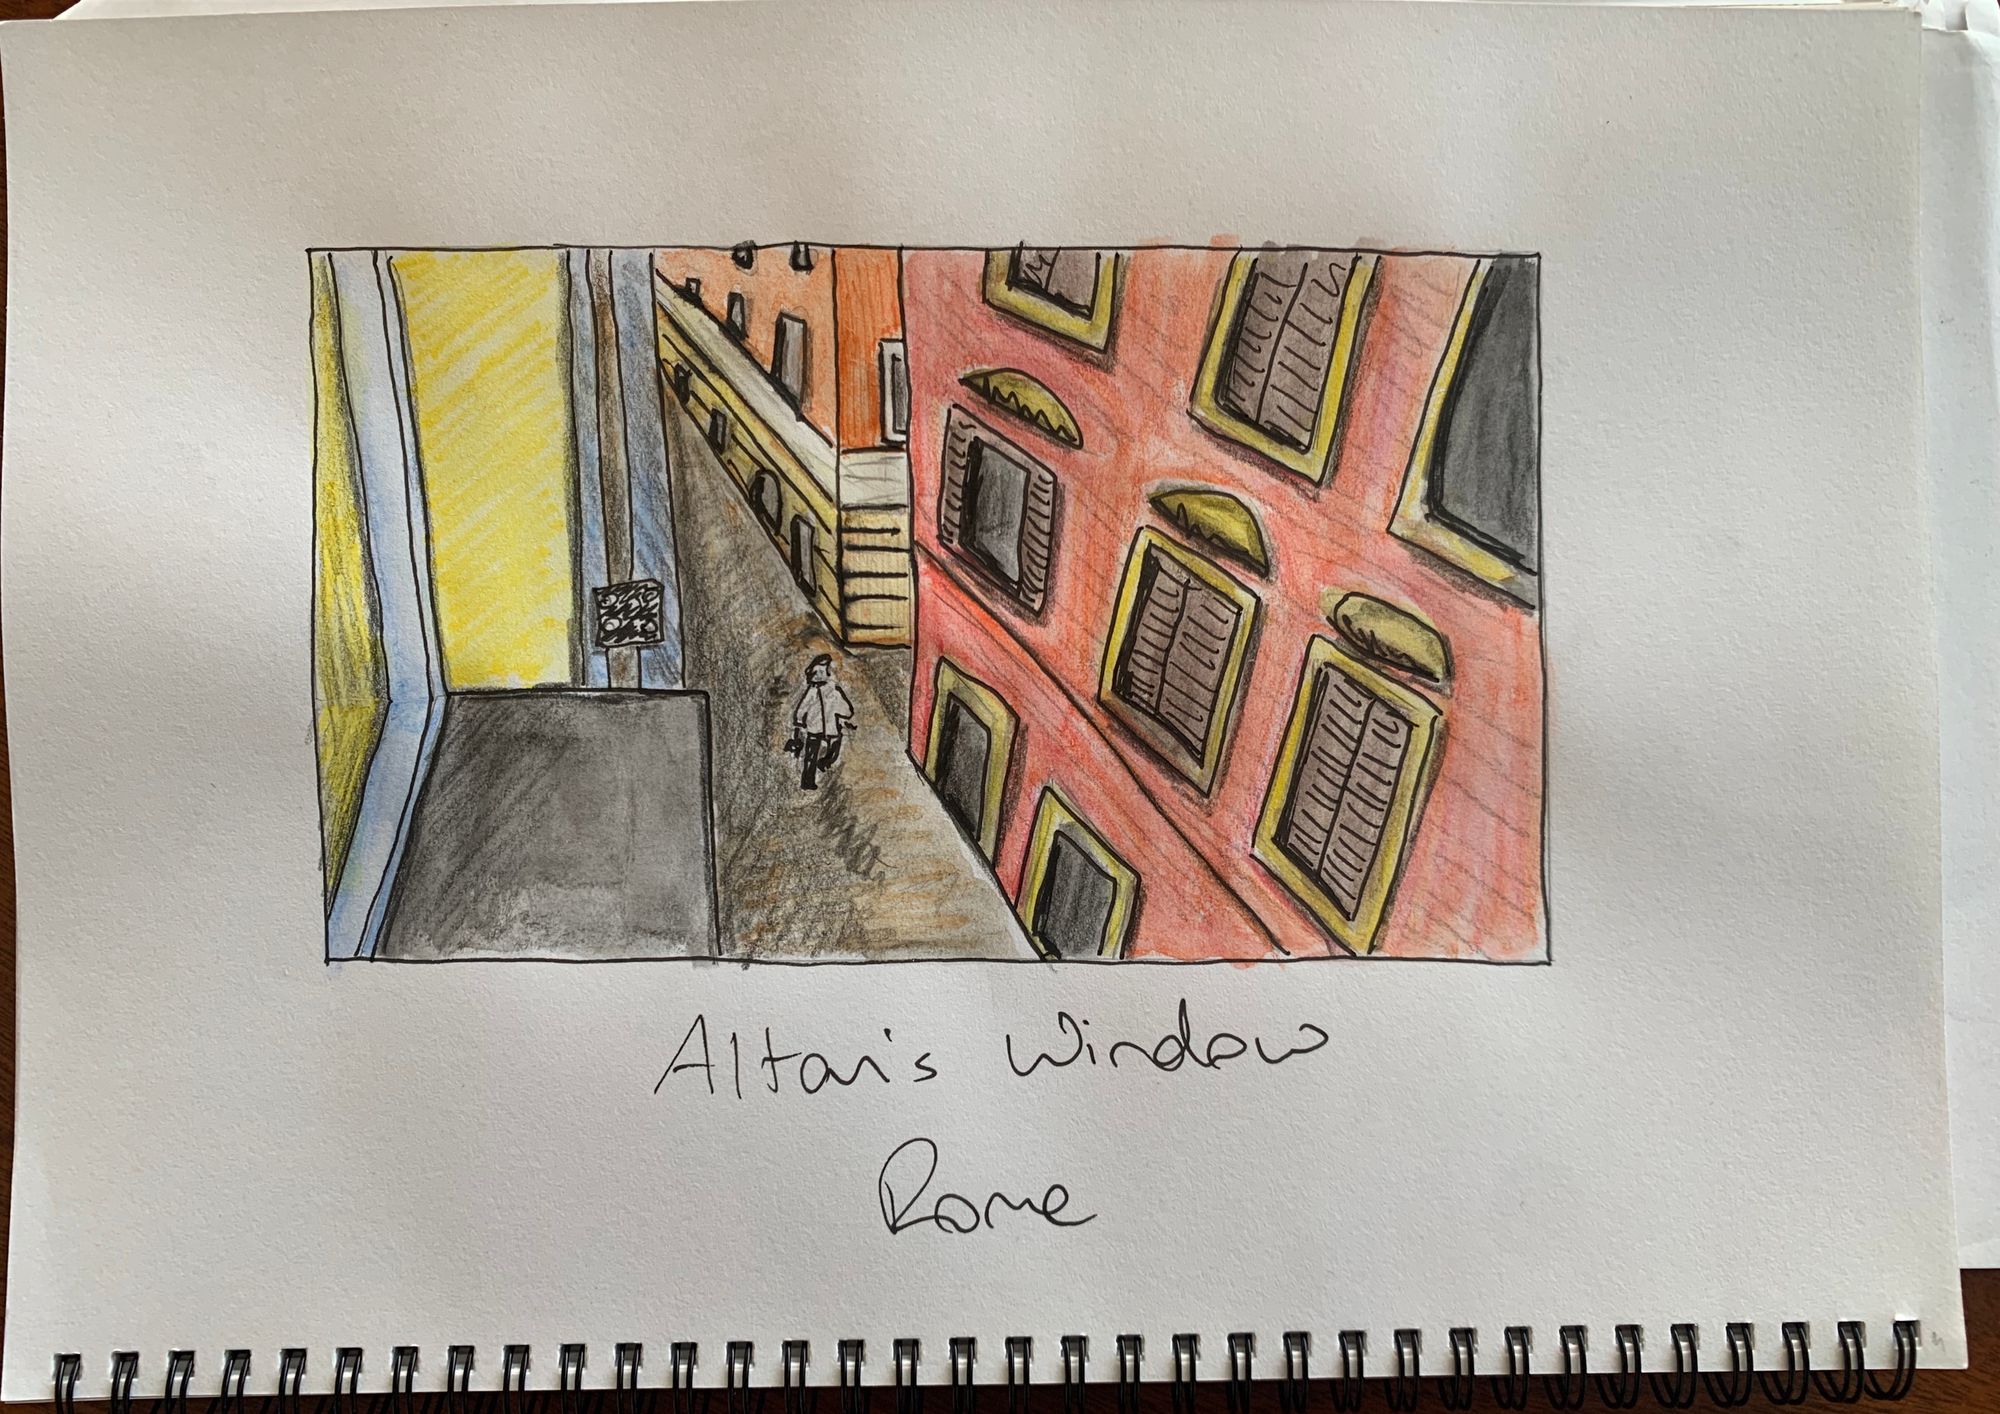 Altair's Window
Rome